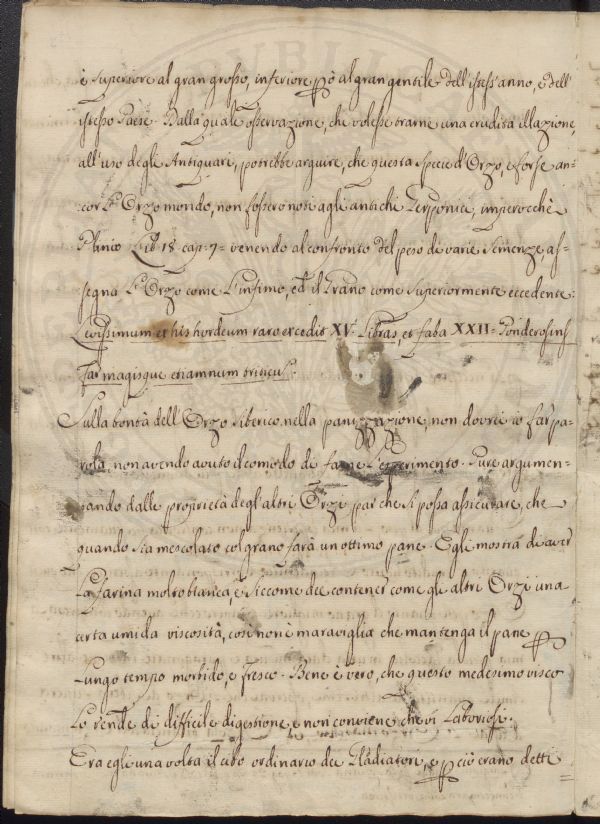 è superiore al gran grosso, inferiore però al gran gentile dell'istess'anno, e dell'
istesso Paese. Dalla quale osservazione, chi volesse trarne una erudita illazione,
all'uso degli Antiquarj, potrebbe arguire, che questa specie d'Orzo, e forse an-
cor l'Orzo mondo, non fossero noti agli antichi Geoponici, imperocchè
Plinio Lib: 18. cap: 7 = venendo al confronto del peso di varie Semenze, as-
segna l'Orzo come l'infimo, ed il Grano come superiormente eccedente:
Levissimum ex his hordeum raro excedit XV. Libras, et faba XXII = Ponderosius
far magisque etiamnum triticum.
Sulla bontà dell'Orzo Siberico nella panizzazione, non dovrei io far pa-
rola, non avendo avuto il comodo di farne l'esperimento. Pure argumen-
tando dalle proprietà degl'altri Orzi par che si possa assicurare, che
quando sia mescolato col grano farà un ottimo pane. Egli mostra di aver
la farina molto bianca, e siccome dee contener come gli altri Orzi una
certa umida viscosità, così non è maraviglia che mantenga il pane per
lungo tempo morbido, e fresco. Bene è vero, che questo medesimo visco
lo rende di difficile digestione, e non conviene che ai Laboriosi.
Era egli una volta il cibo ordinario dei Gladiatori, e perciò erano detti =